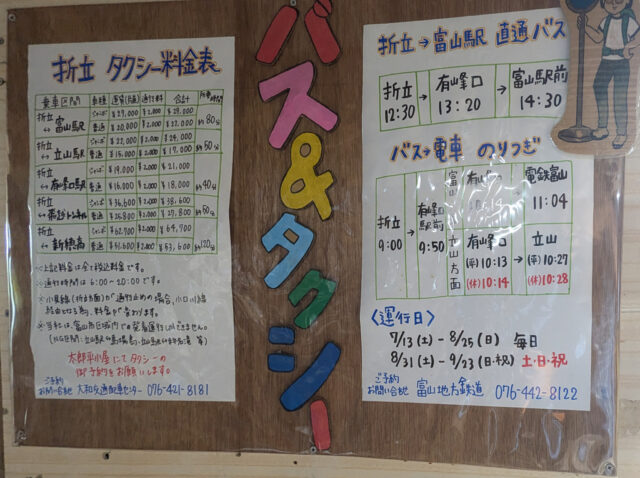 バス&タクシー
折立 タクシー料金表
乗車区間 車種 運賃(片道) 通行料 合計 所要時間
折立 ↔ 富山駅 ジャンボ ¥27,000 ¥2,000 ¥29,000 約80分
普通 ¥20,000 ¥2,000 ¥22,000
折立 ↔ 立山駅 ジャンボ ¥22,000 ¥2,000 ¥24,000 約50分
普通 ¥15,000 ¥2,000 ¥17,000
折立 ↔ 有峰口駅 ジャンボ ¥19,000 ¥2,000 ¥21,000 約40分
普通 ¥16,000 ¥2,000 ¥18,000
折立 ジャンボ ¥36,600 ¥2,000 ¥38,600
普通 ¥25,800 ¥2,000 ¥27,800
折立 ↔ 新穂高 ジャンボ ¥62,900 ¥2,000 ¥64,900 約120分
普通 ¥51,600 ¥2,000 ¥53,600
※上記料金は全て税込料金です。
※通行時間は6:00~20:00です。
※小見線(折立方面)が通行止めの場合、小口川線
経由となる為、料金が変わります。
※当社は、富山市区域内での営業運行しかできません。
太郎平小屋にてタクシーの
御予約をお願いします。
ご予約 お問い合わせ 大和交通配車センター 076-421-8181
折立→富山駅 直通バス
折立 12:30 → 有峰口 13:20 → 富山駅前 14:30
バス→電車 のりつぎ
折立 9:00 → 有峰口駅前 9:50
富山 有峰口 → 電鉄富山 11:04
立山方面 有峰口 (平)10:13 (休)10:14 → 立山 (平)10:27 (休)10:28
〈運行日〉
7/13(土)-8/25(日) 毎日
8/31(土)-9/23(日・祝) 土・日・祝
ご予約 お問い合わせ 富山地方鉄道 076-442-8122